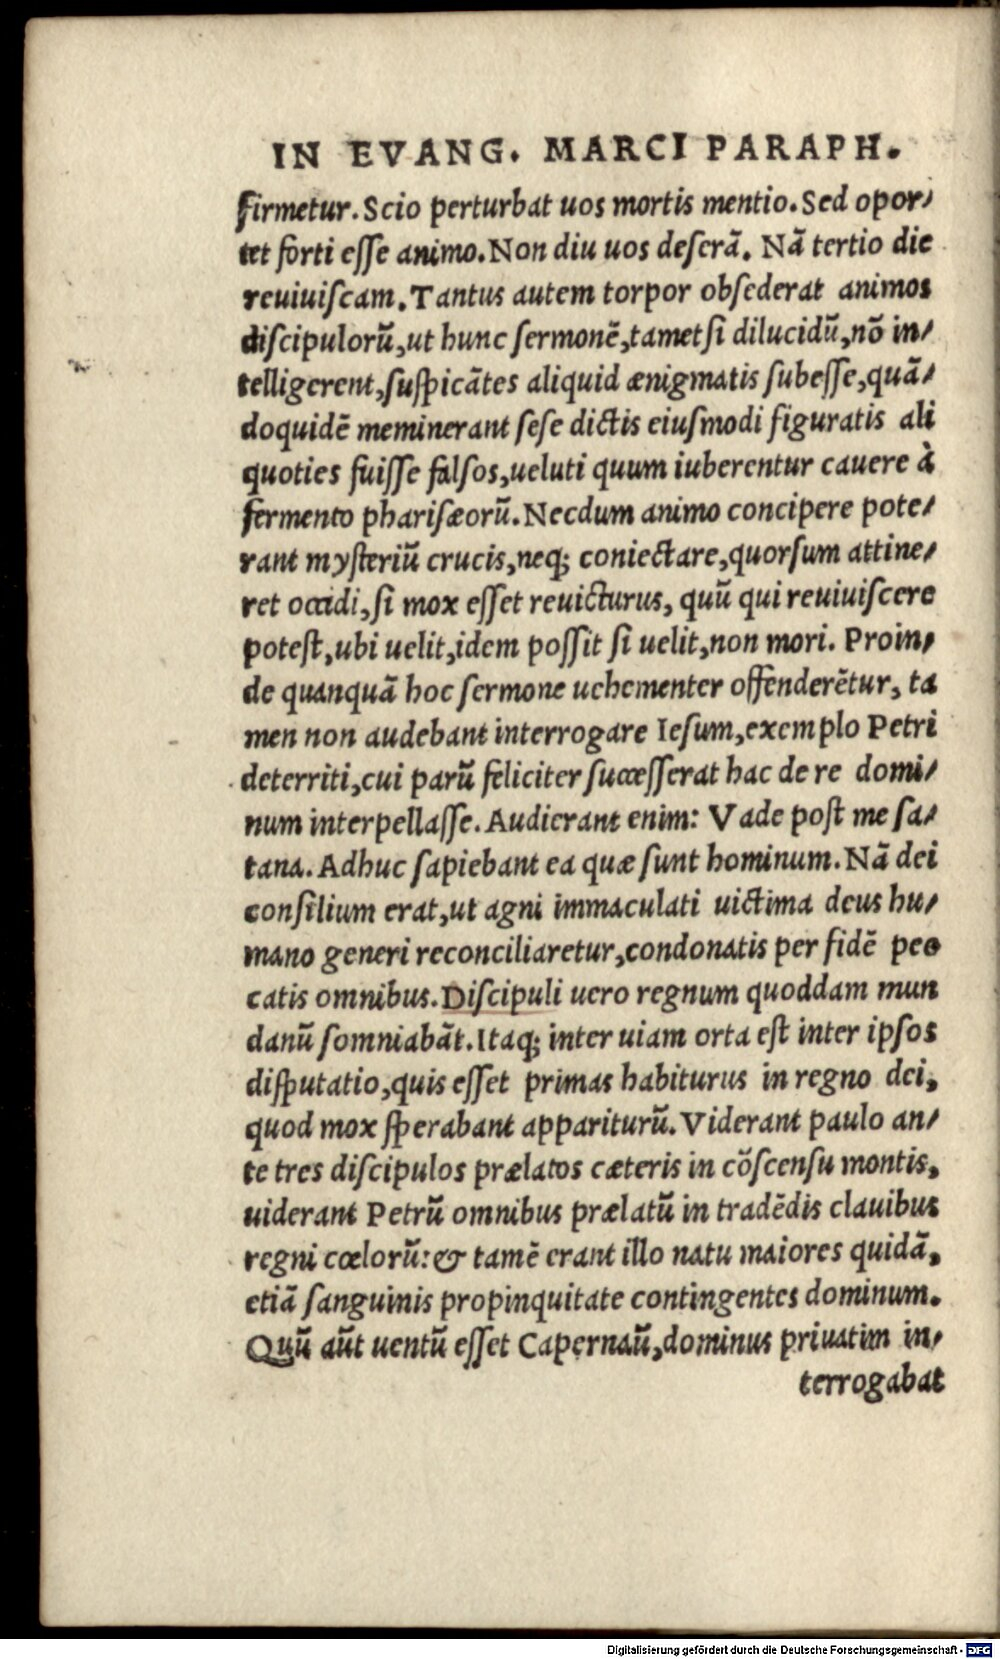 IN EVANG. MARCI PARAPH.
firmetur. Scio perturbat uos mortis mentio. Sed opor/
tet forti esse animo. Non diu uos deserã. Nã tertio die
reuiuiscam. Tantus autem torpor obsederat animos
discipulorũ, ut hunc sermonẽ, tametsi dilucidũ, nõ in/
telligerent, suspicãtes aliquid ænigmatis subesse, quã/
doquidẽ meminerant sese dictis eiusmodi figuratis ali
quoties fuisse falsos, ueluti quum iuberentur cauere à
fermento pharisæorũ. Necdum animo concipere pote/
rant mysteriũ crucis, neq; coniectare, quorsum attine/
ret occidi, si mox esset reuicturus, quũ qui reuiuiscere
potest, ubi uelit, idem possit si uelit, non mori. Proin/
de quanquã hoc sermone uehementer offenderẽtur, ta
men non audebant interrogare Iesum, exemplo Petri
deterriti, cui parũ feliciter successerat hac de re domi/
num interpellasse. Audierant enim: Vade post me sa/
tana. Adhuc sapiebant ea quæ sunt hominum. Nã dei
consilium erat, ut agni immaculati uictima deus hu/
mano generi reconciliaretur, condonatis per fidẽ pec
catis omnibus. Discipuli uero regnum quoddam mun
danũ somniabãt. Itaq; inter uiam orta est inter ipsos
disputatio, quis esset primas habiturus in regno dei,
quod mox sperabant appariturũ. Viderant paulo an/
te tres discipulos prælatos cæteris in cõscensu montis,
uiderant Petrũ omnibus prælatũ in tradẽdis clauibus
regni cœlorũ: & tamẽ erant illo natu maiores quidã,
etiã sanguinis propinquitate contingentes dominum.
Quũ aũt uentũ esset Capernaũ, dominus priuatim in/
terrogabat
Digitalisierung gefördert durch die Deutsche Forschungsgemeinschaft - DFG